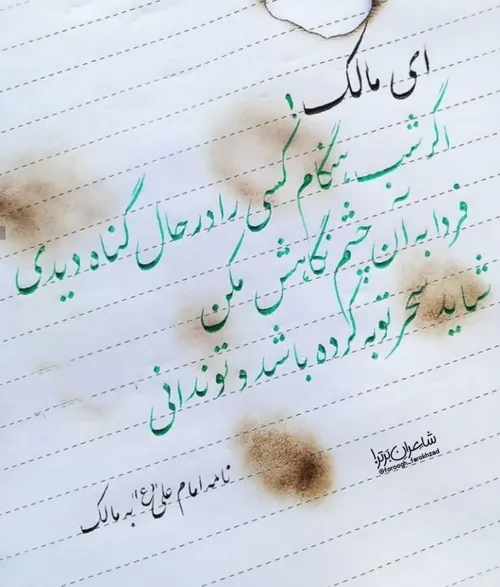 ای مالک!
اگر شب هنگام کسی را در حال گناه دیدی
فردا به آن چشم نگاهش مکن
شاید سحر توبه کرده باشد و تو ندانی
نامه امام علی(ع) به مالک
شاعران برتر!
@foroogh_farokhzad